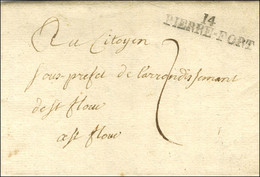 14
PIERRE-FORT
Au Citoyen
sous prefet de l'arrondissement
de st flour
a st flour
2